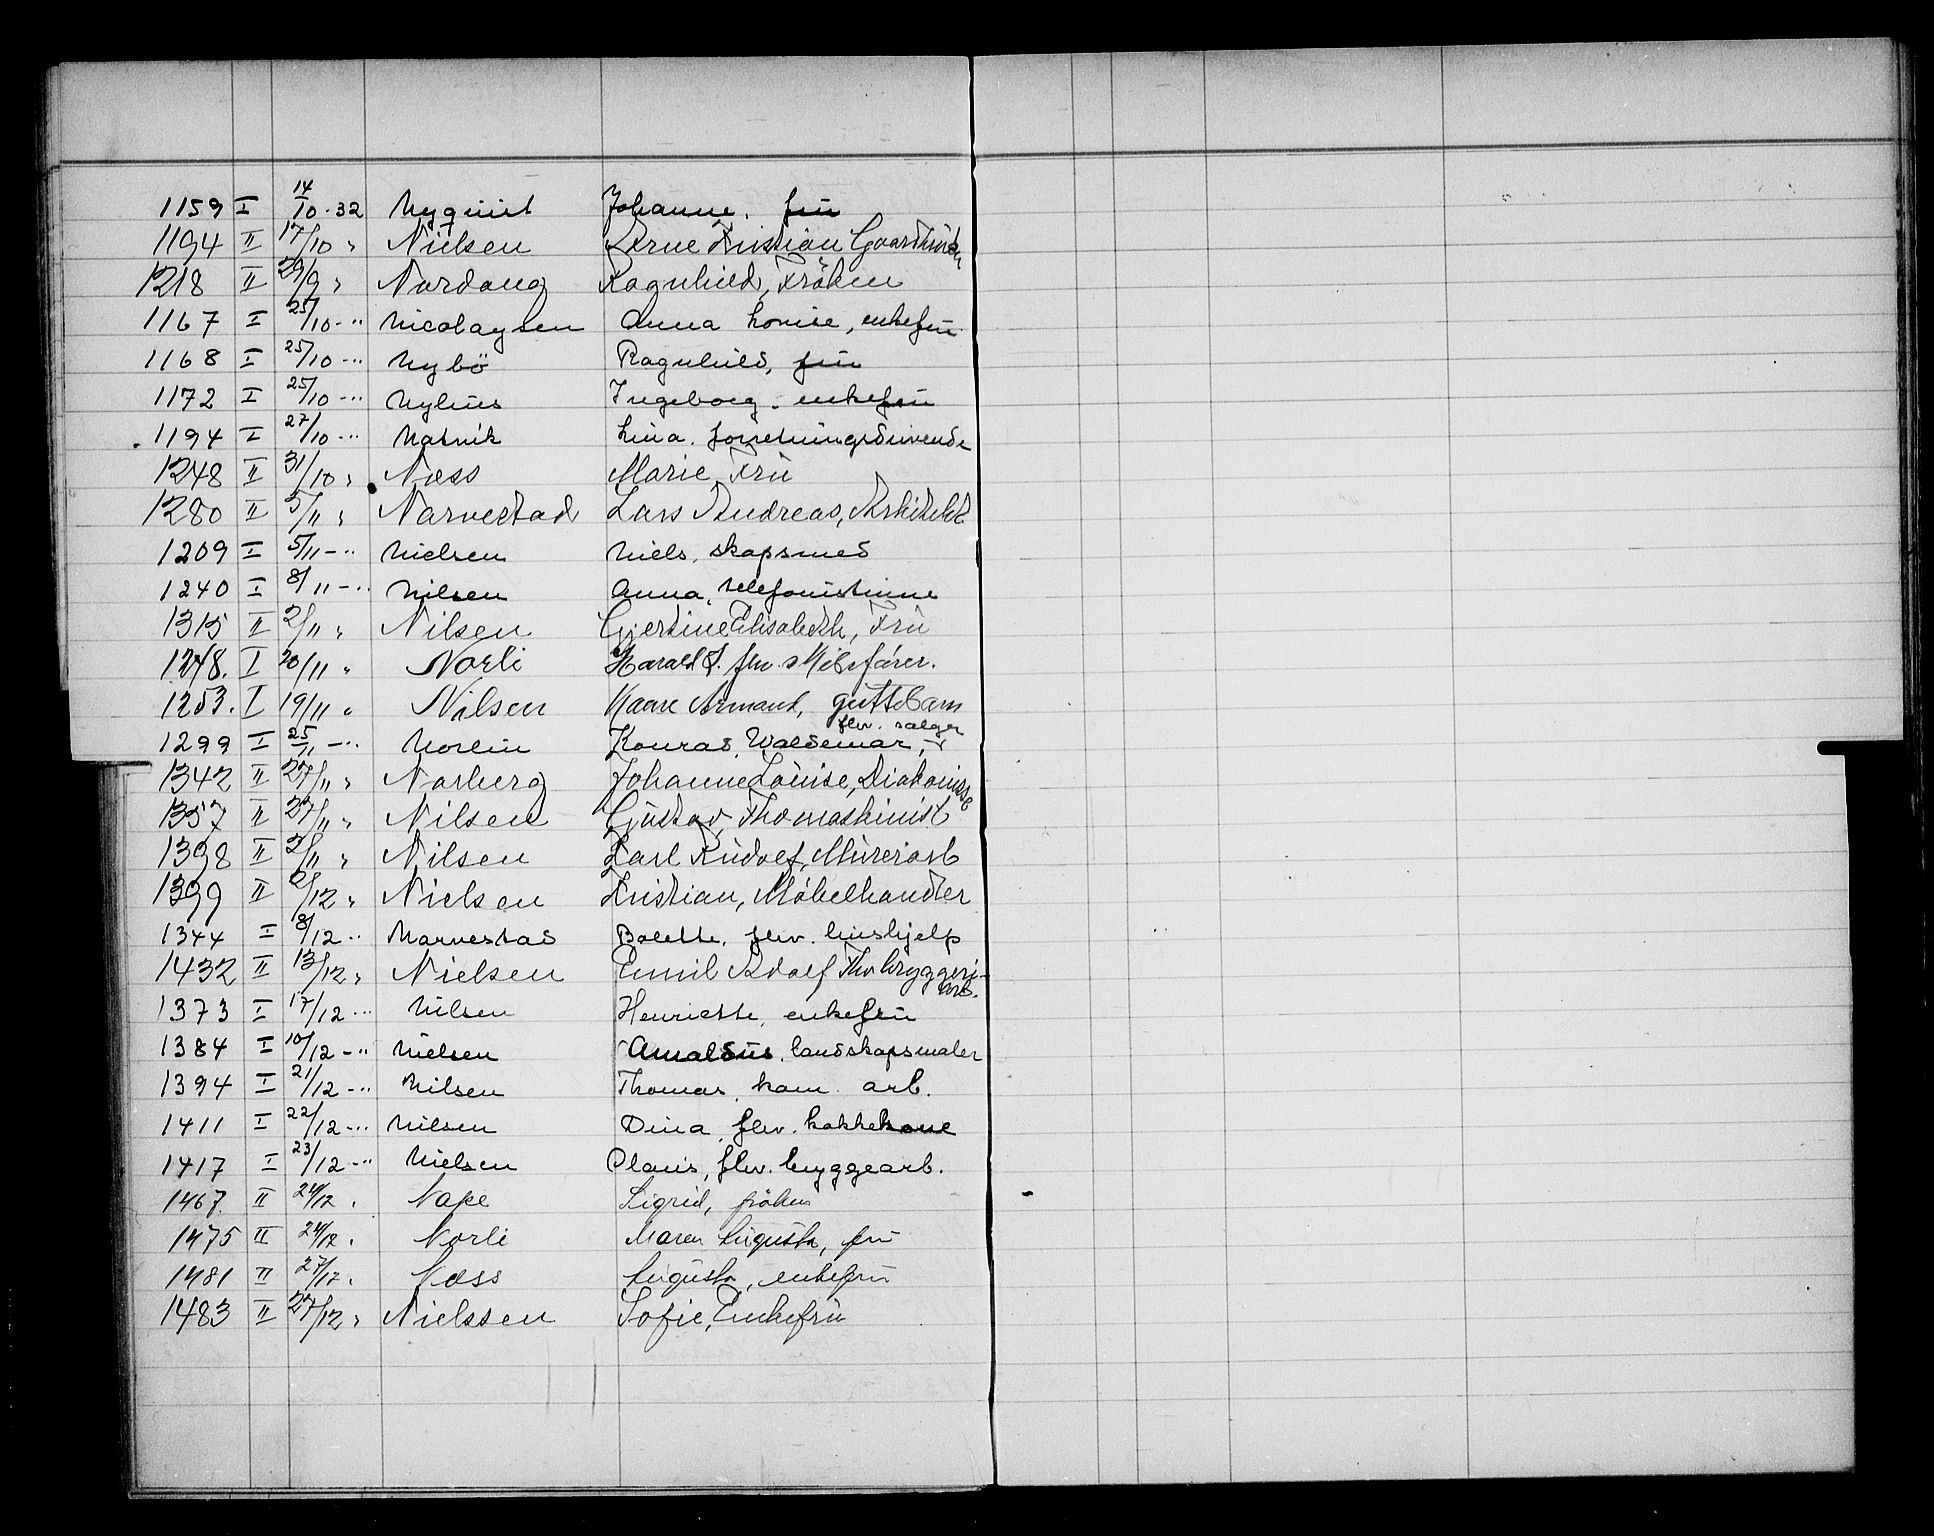 1159 I 14/10-32 Nyquist Johanne, frü
1194 II 17/10 " Nielsen Arne Kristian
1218 II 29/9 " Nordang Ragnhild, Fröken
1167 I 25/10-" Nicolaysen Anna Lovise, enkefrü
1168 I 25/10-" Nybö Ragnhild, frü
1172 I 25/10-" Nylius Ingeborg. enkefrü
1194 I 27/10-" Natvik Lina. forretningsdrivende
1248 II 31/10 " Næss Marie, Frü
1280 II 5/11 " Narvestad Lars Andreas, Arkitekt
1209 I 5/11-" Nielsen Niels, skapsmed
1240 I 8/11-" Nilsen Anna, telefonistinne
1315 II 2/11 " Nilsen Gjertine Elisabeth, Frü
1248. I 20/11 " Norli Harald J. fhv. skibsfører.
1253. I 19/11 " Nilsen Kaare Armand, guttebarn
1299 I 25/11-" Norlin Konrad Waldemar, fhv. sælger
1342 II 27/11 " Norberg Johanne Lovise, Diakonisse
1357 II 27/11 " Nilsen Güstav, Fhv maskinist
1398 II 2/11 " Nilsen Karl Rüdolf, Mürerarb
1399 II 2/12 " Nielsen Kristian, Møbelhandler
1344 I 8/12 " Narvestad Bolette, fhv. hushjelp
1432 II 13/12 " Nielsen Emil Adolf Fhv bryggeri-
arb.
1373 I 17/12 " Nilsen Henriette, enkefrü
1384 I 10/12-" Nielsen Amaldus, landskapsmaler
1394 I 21/12-" Nilsen Thomas, kom. arb.
1411 I 22/12-" Nilsen Dina, fhv. kokkekone
1417 I 23/12-" Nielsen Claus, fhv. bryggearb.
1467. II 24/12 " Nape Sigrid, frøken
1475 II 24/12 " Norli Maren Augusta, frü
1481 II 27/12 " Næss Augusta, enkefrü
1483 II 27/12 " Nielssen Sofie, Enkefrü